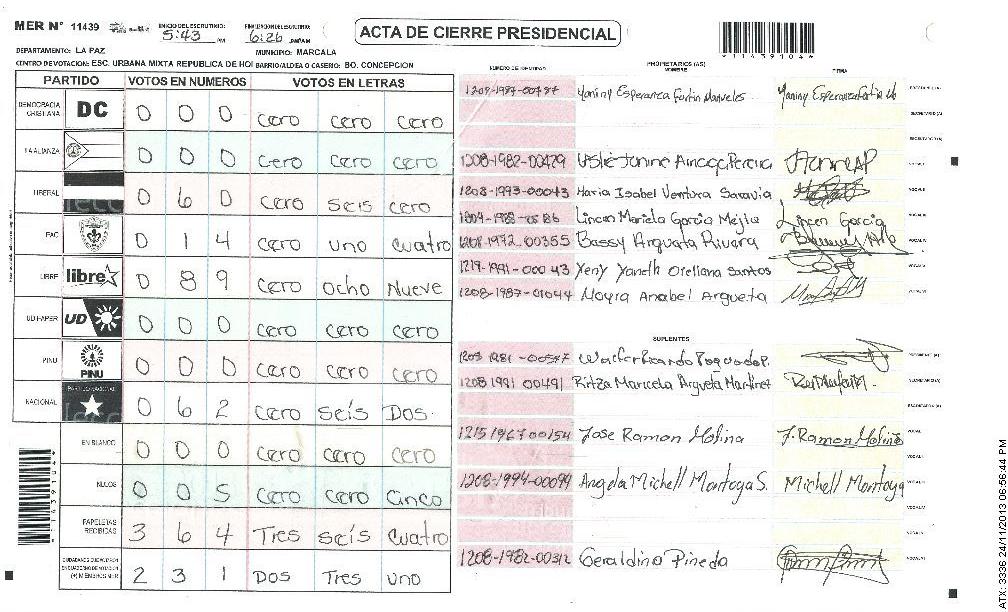 MER N° 11439 INICIO DEL ESCRUTINIO: 5:43 PM FINALIZACION DEL ESCRUTINIO: 6:26 PM/AM ACTA DE CIERRE PRESIDENCIAL
DEPARTAMENTO: LA PAZ MUNICIPIO: MARCALA
CENTRO DE VOTACION: ESC. URBANA MIXTA REPUBLICA DE HOI BARRIO/ALDEA O CASERIO: BO. CONCEPCION
*11439104*
PARTIDO VOTOS EN NUMEROS VOTOS EN LETRAS
DEMOCRACIA CRISTIANA DC 0 0 0 cero cero cero
LA ALIANZA 0 0 0 cero cero cero
LIBERAL 0 6 0 cero seis cero
PAC 0 1 4 cero uno cuatro
LIBRE libre 0 8 9 cero ocho Nueve
UD FAPER UD 0 0 0 cero cero cero
PINU PINU 0 0 0 cero cero cero
NACIONAL PARTIDO NACIONAL 0 6 2 cero seis Dos.
EN BLANCO 0 0 0 cero cero cero
NULOS 0 0 5 cero cero cinco
PAPELETAS RECIBIDAS 3 6 4 Tres seis cuatro
(+) MIEMBROS MER 2 3 1 Dos Tres uno
*11439104*
NUMERO DE IDENTIDAD PROPIETARIOS (AS) NOMBRE FIRMA
Yaniny Esperanza
SECRETARIO (A)
1208-1982-00479
1208-1993-00043 Maria Isabel Ventura Saravia
Lincen Mariela Garcia Mejia Lincen Garcia
1208-1972-00355 Bassy Argueta Rivera
1219-1991-00043 Yeny Yaneth Orellana Santos
1208-1987-01044 Moyra Anabel Argueta
SUPLENTES
PRESIDENTE (A)
1208 1991 00491 Ritza Maricela Argueta Martinez SECRETARIO (A)
1215 1967 00154 Jose Ramon Molina J. Ramon Molina VOCAL I
1208-1994-00099 Angela Michell Montoya S. Michell Montoya
1208-1982-00312 Geraldina Pineda
ATX: 3336 24/11/2013 06:56:44 PM